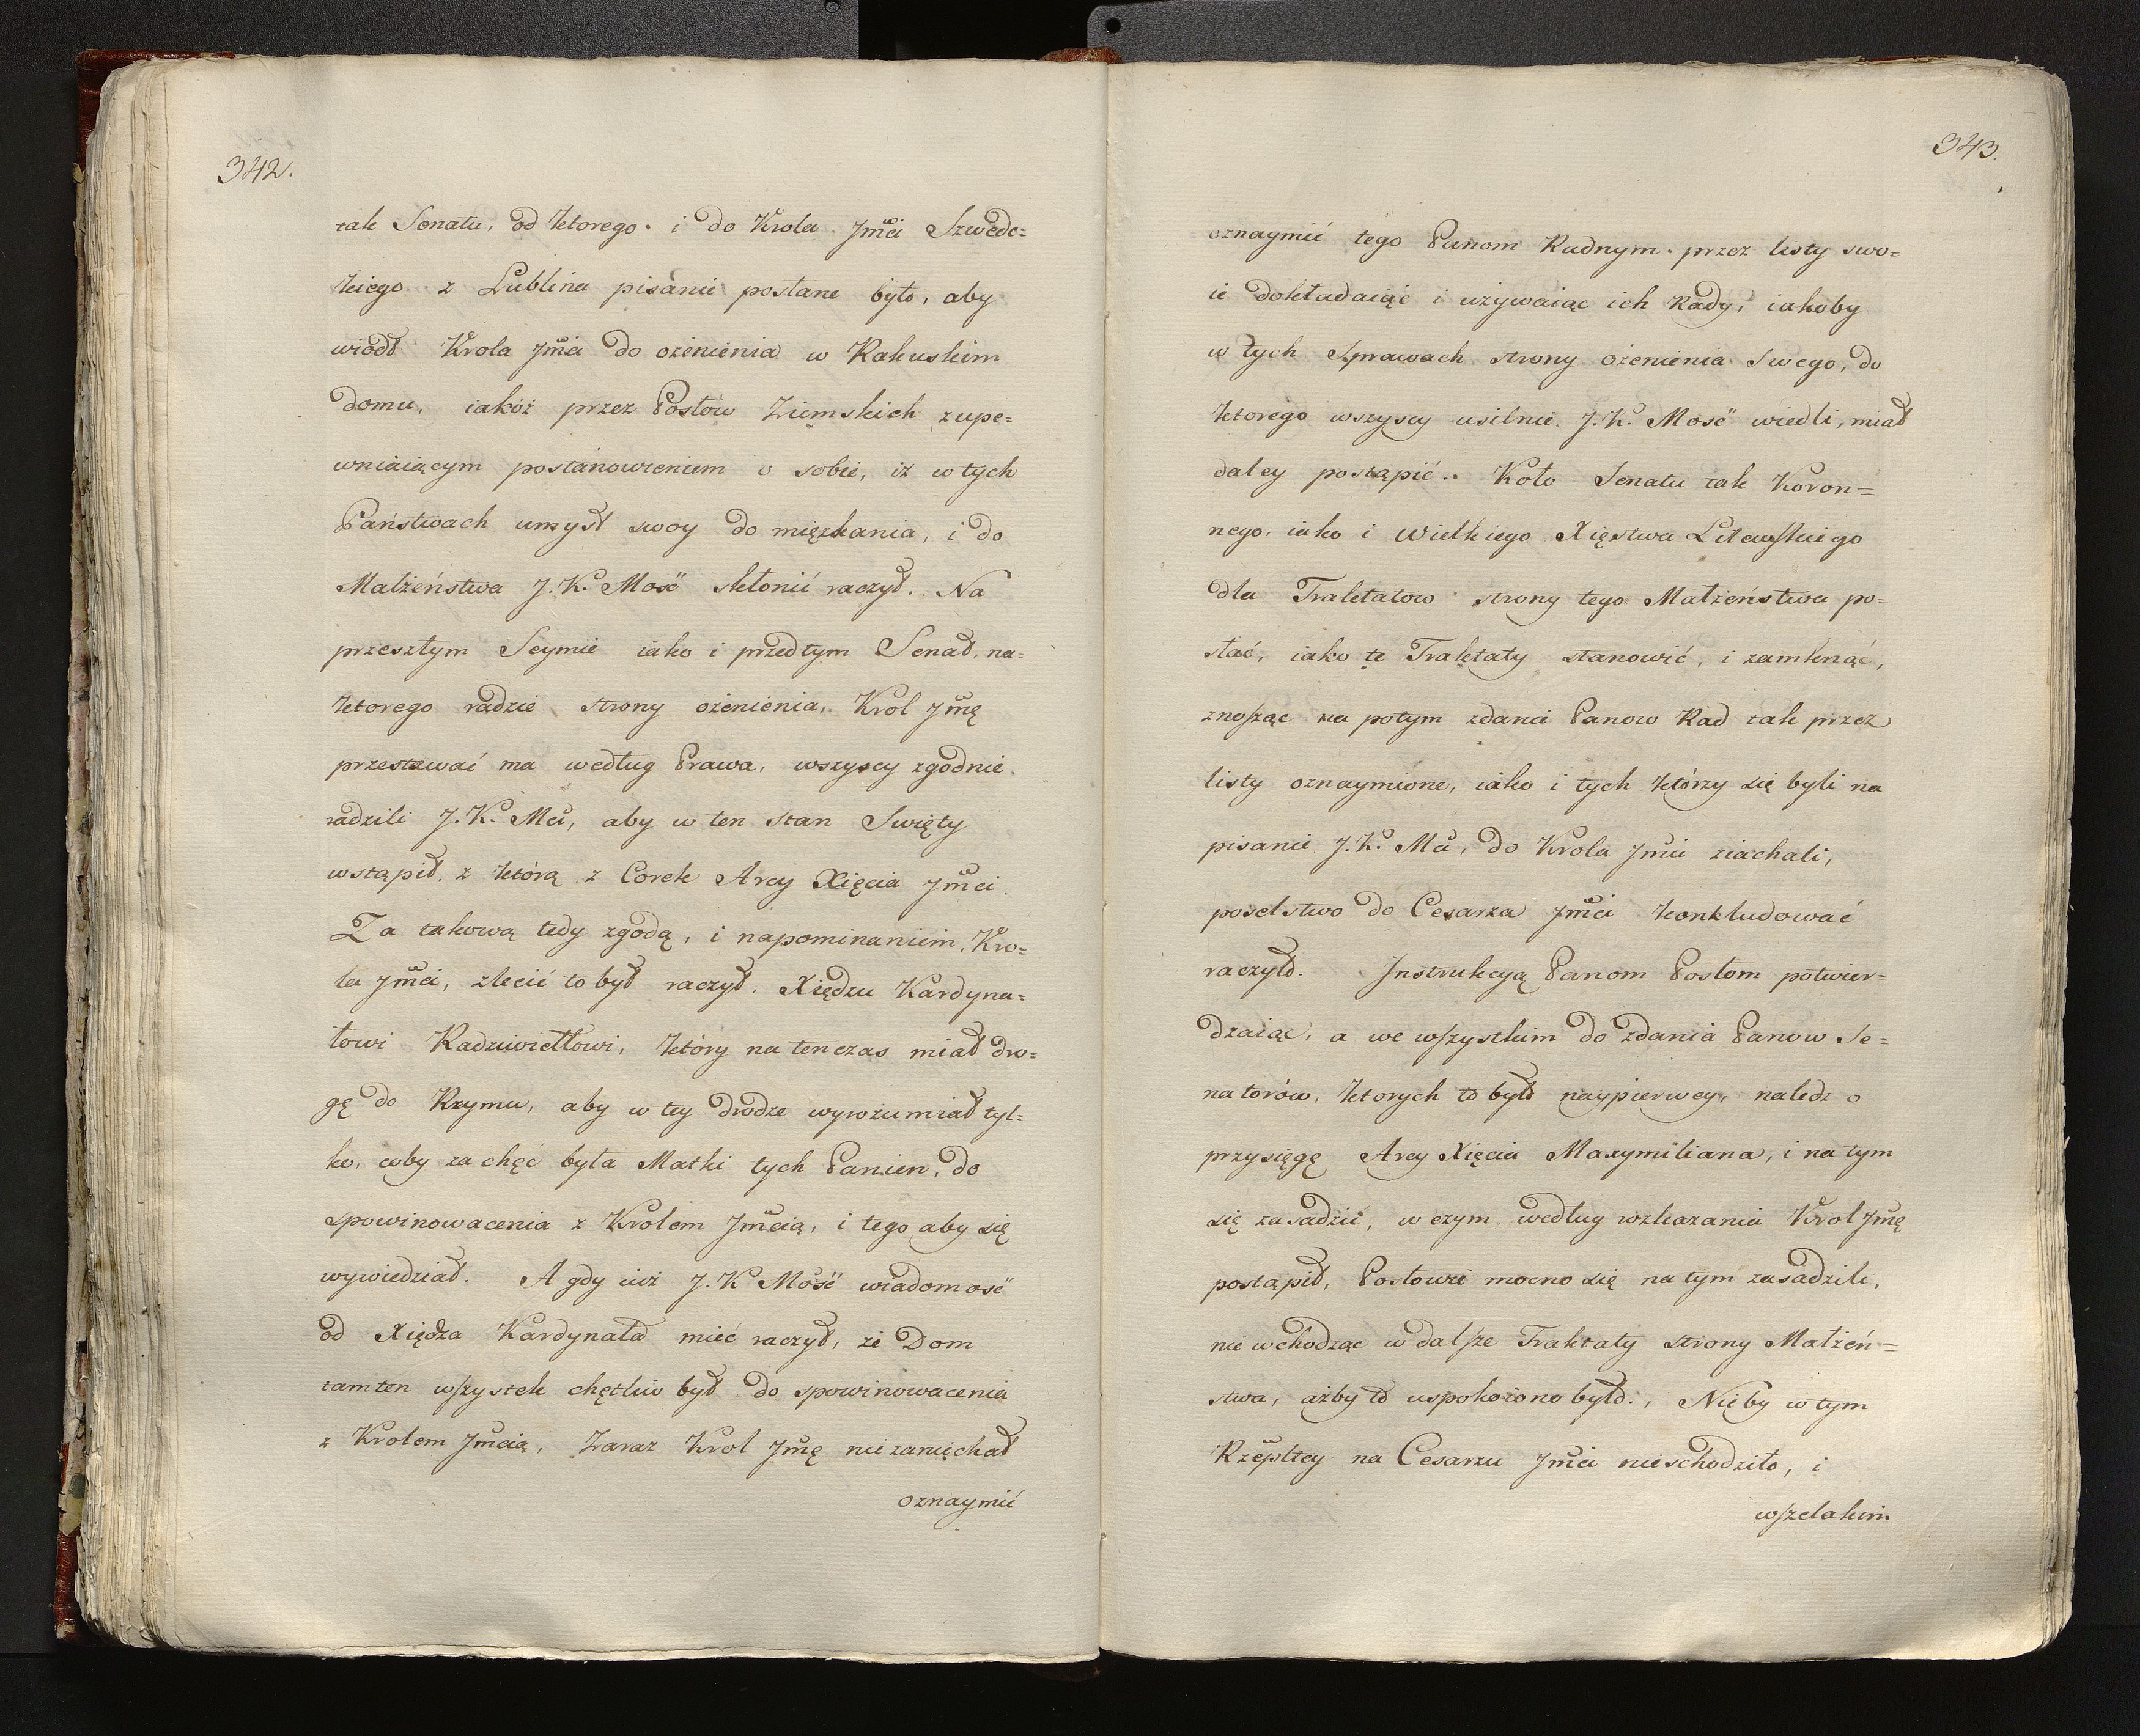 342.
tak Senatu, od ktorego i do Krola Jmći Szwedz=
kiego z Lublina pisanie posłane było, aby
wiodł Krola Jmći do ożenienia w Rakuskim
domu, iakoż przez Posłow Ziemskich zupe=
wniaiącym postanowieniem o sobie, iż w tych
Państwach umysł swoy do mięzkania, i do
Małżeństwa J. K. Mość skłonić raczył. Na
przeszłym Seymie iako i przedtym Senat, na
ktorego radzie strony ożenienia, Krol Jmę
przestawać ma według Prawa, wszyscy zgodnie
radzili J. K. Mći, aby w ten stan Swięty
wstąpił z którą z Corek Arcy Xięcia Jmći.
Za takową tedy zgodą, i napominaniem, Kro=
la Jmći, zlecić to był raczył, Xiędzu Kardyna=
łowi Radziwiełłowi, który na ten czas miał dro=
gę do Rzymu, aby w tey drodze wyrozumiał tyl=
ko, coby za chęć była Matki tych Panien, do
spowinowacenia z Krolem Jmćią, i tego aby się
wywiedział. A gdy iuż J. K. Mość wiadomość
od Xiędza Kardynała mieć raczył, że Dom
tamten wszystek chętliw był do spowinowacenia
z Krolem Jmćią, Zaraz Krol Jmę nie zamięchał
oznaymić
343.
oznaymić tego Panom Radnym przez listy swo=
ie dokładaiąć i używaiąc ich Rady, iakoby
w tych sprawach strony ożenienia swego, do
ktorego wszyscy usilnie J. K. Mość wiedli, miał
daley postąpić. Koło Senatu tak Koron=
nego, iako i Wielkiego Xięstwa Litewskiego
dla Traktatow strony tego Małżeństwa po=
słać, iako te Traktaty stanowić, i zamknąć,
znosząc na potym zdanie Panow Rad tak przez
listy oznaymione, iako i tych którzy się byli na
pisanie J. K. Mći, do Krola Jmći ziachali,
poselstwo do Cesarza Jmći konkludować
raczyło. Instrukcyą Panom Posłom potwier=
dzaiąc, a we wszystkim do zdania Panow Se=
natorów, ktorych to było naypierwey, naledz o
przysięgę Arcy Xięcia Maxymiliana, i na tym
się zasadzić, w czym według wzkazania Krol Jmę
postąpił, Posłowie mocno się na tym zasadzili,
nie wchodząc w dalsze Traktaty strony Małżeń=
stwa, ażby to uspokoiono było., Nieby w tym
Rzepltey na Cesarzu Jmći nie schodziło, i
wszelakim